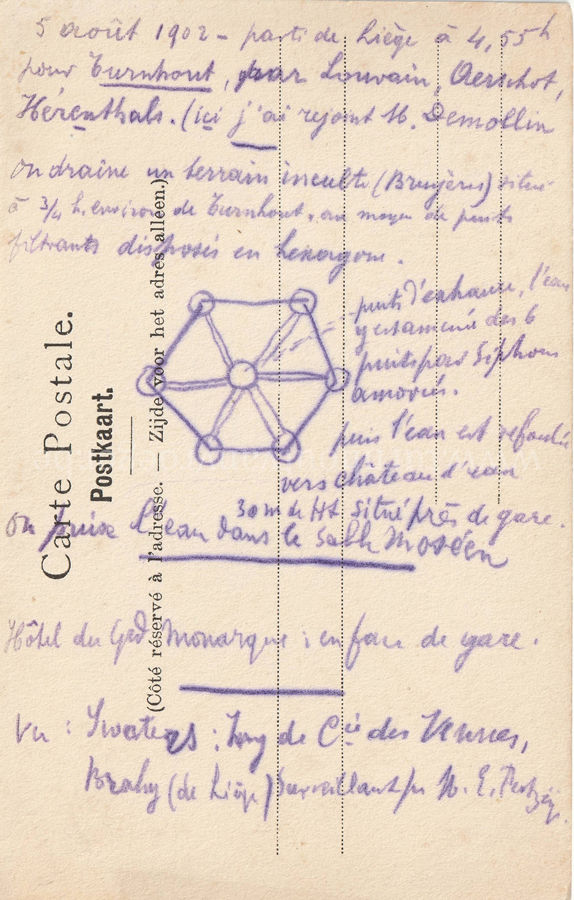 5 août 1902 - parti de Liège à 4,55h
pour Turnhout, par Louvain, Aerschot,
Hérenthals. (ici j'ai rejoint M. Demollin
on draine un terrain inculte (Bruyères) situé
à 3/4 h. environ de Turnhout, au moyen de puits
filtrants disposés en hexagone.
puits d'exhaure, l'eau
y est amenée des 6
puits par siphons
amorcés.
puis l'eau est refoulée
vers château d'eau
30 m de Ht. situé près de gare.
on puise l'eau dans le sable Moséen
Hôtel du Gd Monarque : en face de gare.
Vu : Swaters : Ing de Cie des
Brahy (de Liège) Surveillant pr M. E.
Carte Postale.
Postkaart.
(Côté réservé à l'adresse. — Zijde voor het adres alleen.)